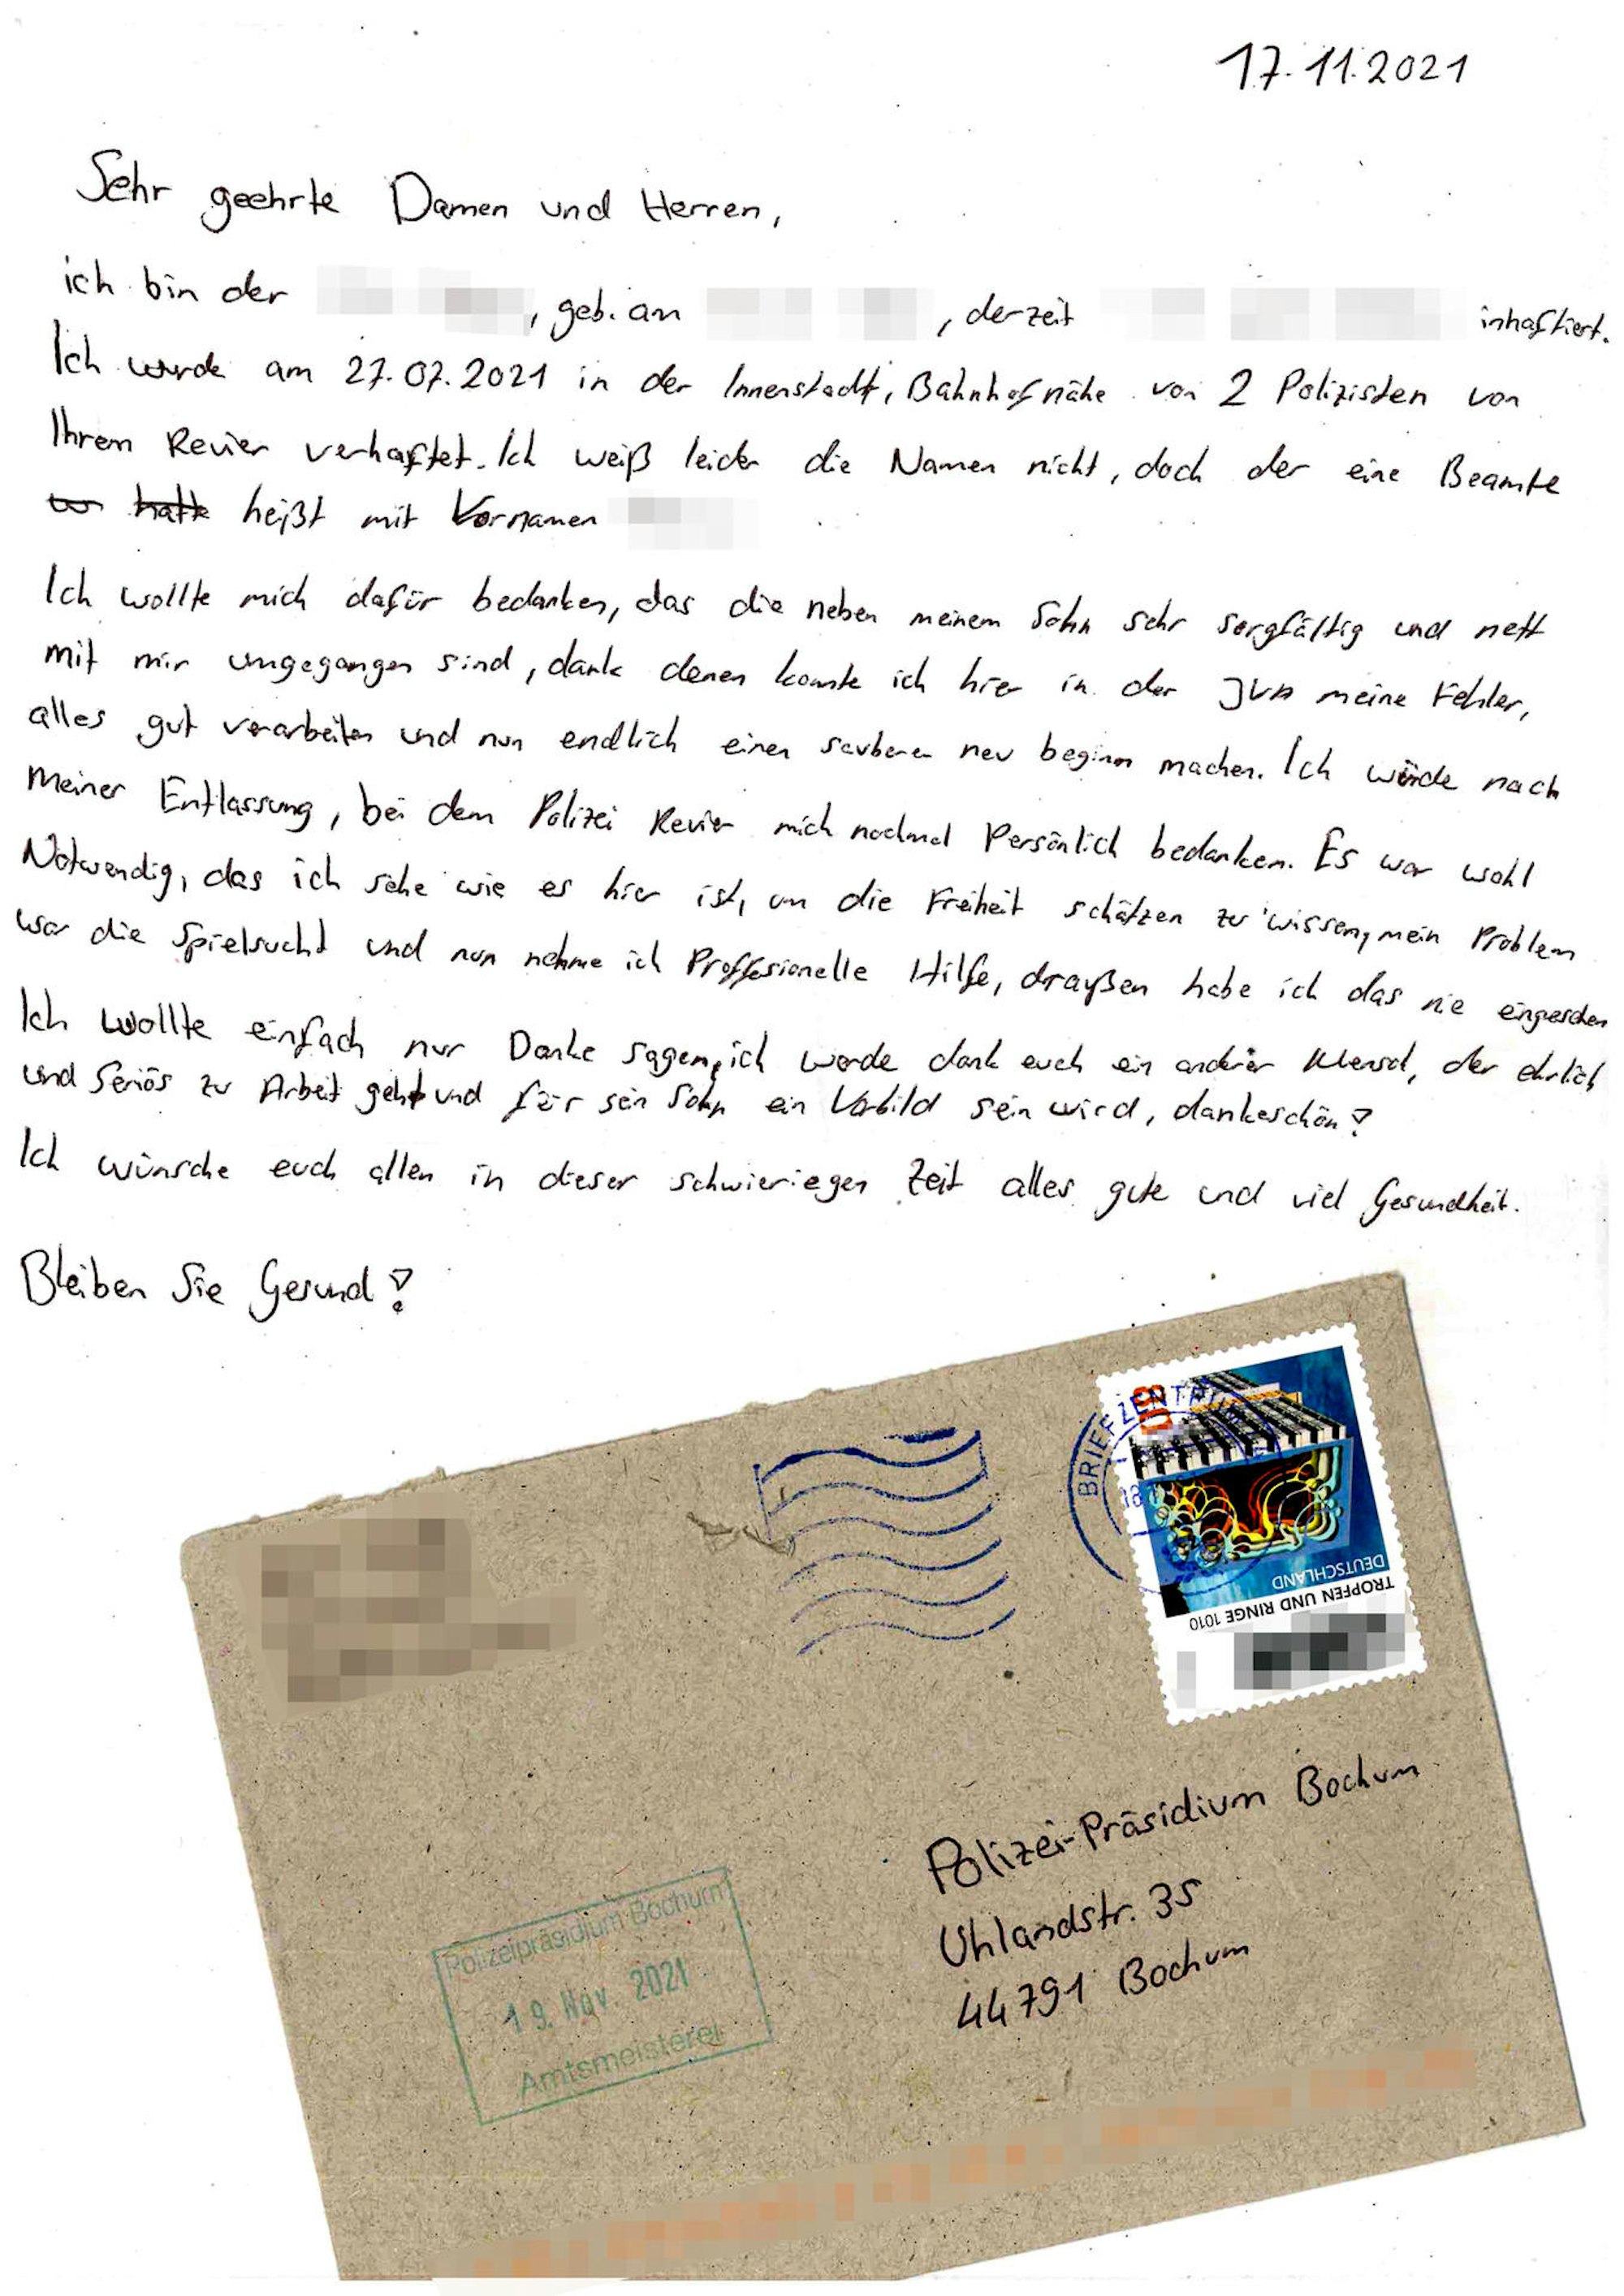 17.11.2021
Sehr geehrte Damen und Herren,
ich bin der , geb. am , derzeit inhaftiert.
Ich wurde am 27.07.2021 in der Innenstadt, Bahnhofnähe von 2 Polizisten von
Ihrem Revier verhaftet. Ich weiß leider die Namen nicht, doch der eine Beamte
hatte heißt mit Vornamen
Ich wollte mich dafür bedanken, das die neben meinem Sohn sehr sorgfältig und nett
mit mir umgegangen sind, dank denen konnte ich hier in der JVA meine Fehler,
alles gut verarbeiten und nun endlich einen sauberen neu beginn machen. Ich würde nach
meiner Entlassung, bei dem Polizei Revier mich nochmal Persönlich bedanken. Es war wohl
Notwendig, das ich sehe wie es hier ist, um die Freiheit schätzen zu wissen, mein Problem
war die Spielsucht und nun nehme ich Proffesionelle Hilfe, draußen habe ich das nie eingesehen
Ich wollte einfach nur Danke sagen, ich werde dank euch ein anderer Mensch, der ehrlich
und Seriös zu Arbeit geht und für sein Sohn ein Vorbild sein wird, dankeschön!
Ich wünsche euch allen in dieser schwieriegen Zeit alles gute und viel Gesundheit.
Bleiben Sie Gesund!
BRIEFZENTRUM
18.
DEUTSCHLAND
TROPFEN UND RINGE 1010
Polizei-Präsidium Bochum
Uhlandstr. 35
44791 Bochum
Polizeipräsidium Bochum
19. Nov. 2021
Amtsmeisterei